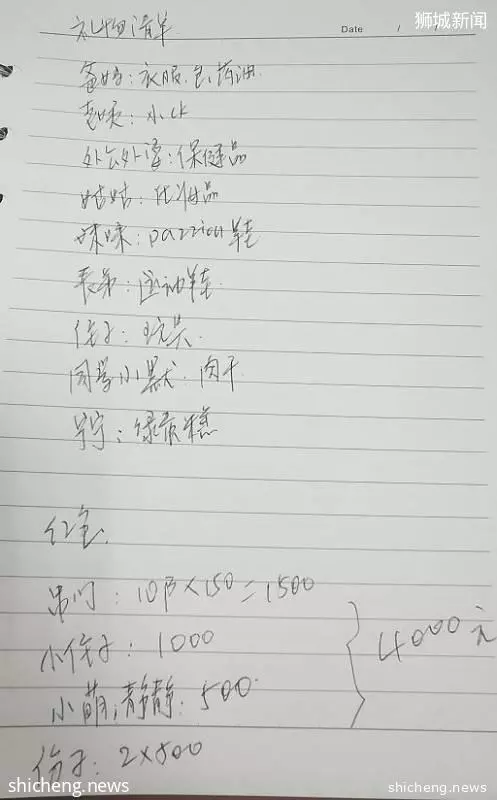 狮城新闻
Date / /
礼物清单
爸妈：衣服、包、药油
表妹：小ck
外公外婆：保健品
姑姑：化妆品
妹妹：pazzion鞋
表弟：运动鞋
侄子：玩具
同学小默：肉干
宁宁：绿质糕
红包
串门：10户×150=1500
小侄子：1000
小萌，静静：500
4000元
份子：2×500
shicheng.news
shicheng.news